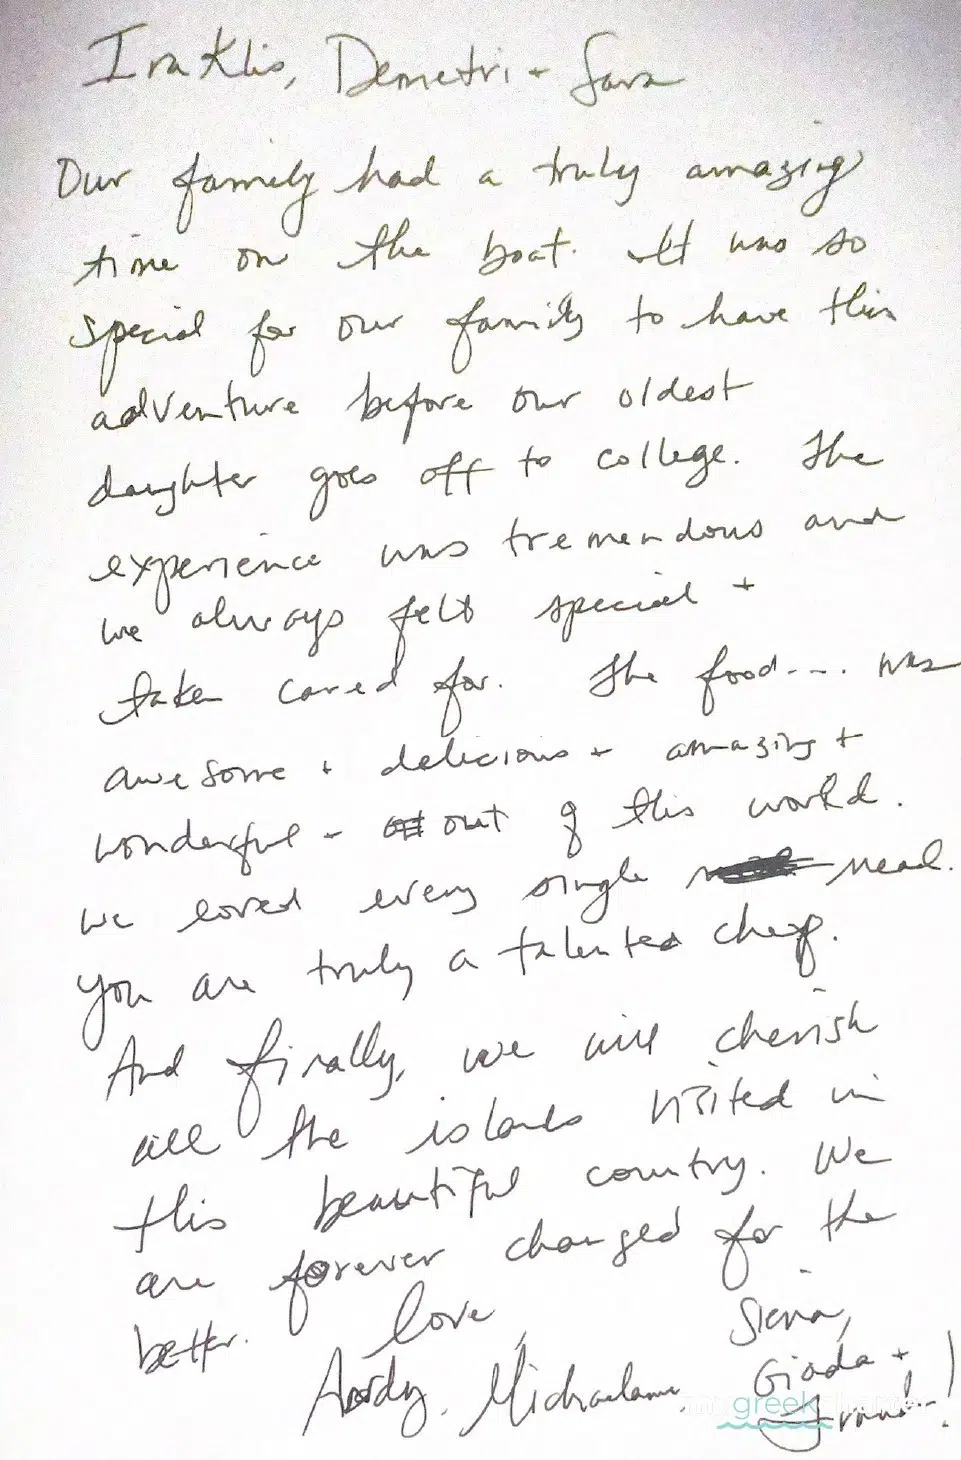 Iraklis, Demetri + Sara
Our family had a truly amazing
time on the boat. It was so
special for our family to have this
adventure before our oldest
daughter goes off to college. The
experience was tremendous and
we always felt special +
taken cared for. The food.... was
awesome + delicious + amazing +
wonderful - out of this world.
we loved every single meal.
You are truly a talented chef.
And finally, we will cherish
all the islands visited in
this beautiful country. We
are forever changed for the
better.
love,
Andy, Michaelann,
Siena,
Giada +
greek